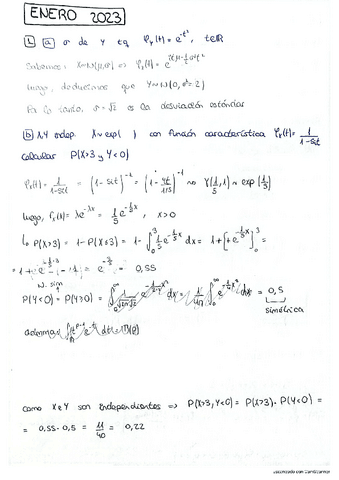 ENERO 2023
1. a) σ de Y tq φ_Y(t)=e^{-t²}, t∈R
Sabemos: X~N(μ,σ) => φ_X(t)= e^{itμ-½σ²t²}
luego, deducimos que Y~N(0, σ²=2)
Por lo tanto, σ=√2 es la desviación estándar
b) X,Y indep. X~exp( ) con función característica φ_X(t)= 1/(1-5it)
calcular P(X>3 y Y<0)
φ_X(t)= 1/(1-5it) = (1-5it)^{-1} = (1- it/(1/5))^{-1} ~ γ(1/5,1) ~ exp(1/5)
luego, f_X(x)= λe^{-λx} = 1/5 e^{-1/5 x}, x>0
P(X>3) = 1-P(X≤3) = 1- ∫_0^3 1/5 e^{-1/5 x} dx = 1+[e^{-1/5 x}]_0^3 =
= 1+e^{-1/5·3} - 1 = e^{-3/5} = 0,55
N. sim
P(Y<0) = P(Y>0) = = 0,5
simétrica
además
como X e Y son independientes => P(X>3, Y<0) = P(X>3)· P(Y<0) =
= 0,55·0,5 = 11/40 = 0,22
Escaneado con CamScanner